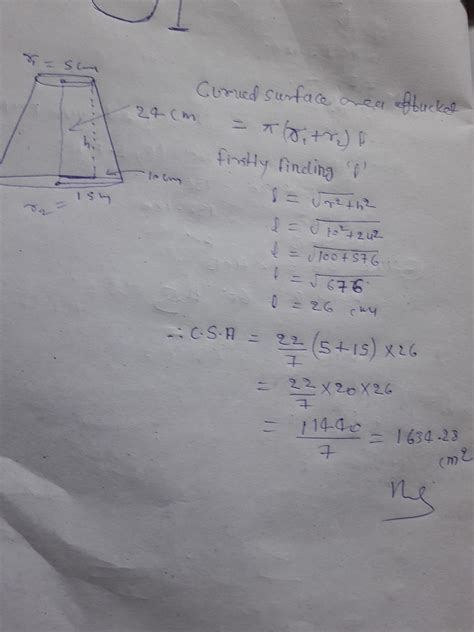 r₁ = 5cm
24 cm
h
10cm
15m
r₂ =
Curved surface area of bucket
= π(r₁+r₂) l
firstly finding 'l'
l = √r²+h²
l = √10²+24²
l = √100+576
l = √676
l = 26 cm
∴ C.S.A = 22/7 (5+15) × 26
= 22/7 × 20 × 26
= 11440/7 = 1634.28 cm²